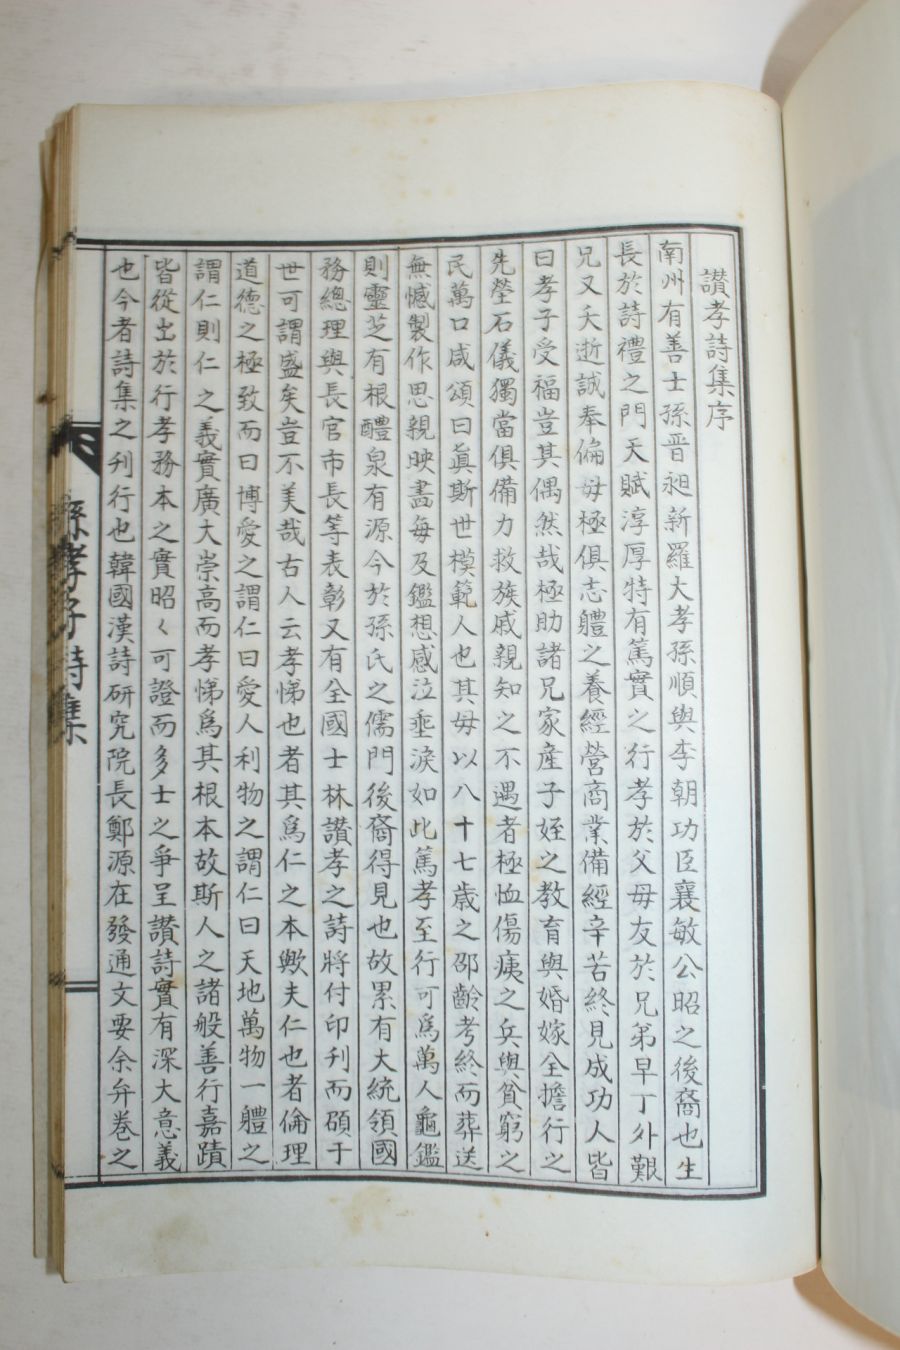 讚孝詩集序
南州有善士孫晋昶新羅大孝孫順與李朝功臣襄敏公昭之後裔也生
長於詩禮之門天賦淳厚特有篤實之行孝於父母友於兄弟早丁外艱
兄又夭逝誠奉偏母極俱志體之養經營商業備經辛苦終見成功人皆
曰孝子受福豈其偶然哉極助諸兄家産子姪之教育與婚嫁全擔行之
先塋石儀獨當俱備力救族戚親知之不遇者極恤傷痍之兵與貧窮之
民萬口咸頌曰眞斯世模範人也其母以八十七歲之邵齡考終而葬送
無憾製作思親映畵每及鑑想感泣垂淚如此篤孝至行可爲萬人龜鑑
則靈芝有根醴泉有源今於孫氏之儒門後裔得見也故累有大統領國
務總理與長官市長等表彰又有全國士林讚孝之詩將付印刊而碩于
世可謂盛矣豈不美哉古人云孝悌也者其爲仁之本歟夫仁也者倫理
道德之極致而曰博愛之謂仁曰愛人利物之謂仁曰天地萬物一體之
謂仁則仁之義實廣大崇高而孝悌爲其根本故斯人之諸般善行嘉蹟
皆從出於行孝務本之實昭々可證而多士之爭呈讚詩實有深大意義
也今者詩集之刊行也韓國漢詩研究院長鄭源在發通文要余弁卷之
孫孝子詩集